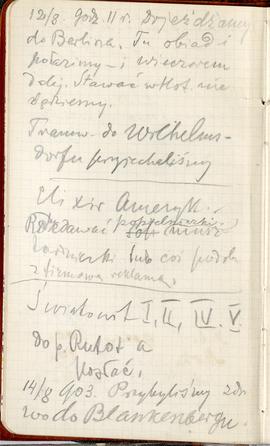 12/8 godz 11 r. Dojeżdżamy
do Berlina. Tu obiad i
położymy – i wieczorem
dalej. Stawać w Kol. nie
będziemy.
Tramw. do Wilhelms-
dorfu przyjechaliśmy
Elixir Ameryk.
Rozdawać popielniczki
lub coś podob.
z firmową reklamą.
Światowit I, II, IV. V.
do p. Rutot a
posłać.
14/8 903. Przybyliśmy zdr
wo do Blankenbergu.